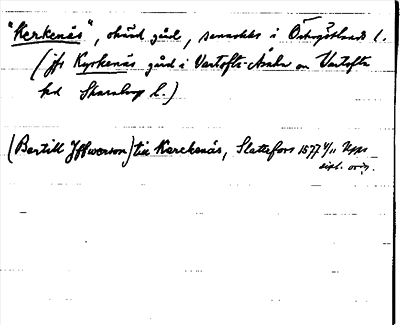 "Kerkenäs", okänd gård, sannolikt i Östergötlands l.
(jfr Kyrkenäs gård i Vartofta-Åsaka sn Vartofta
hd Skaraborgs l.)
(Bertill Iffwerson) till Kerckenäs, Slattefors 1577 4/11 Upps
dipl. orig.